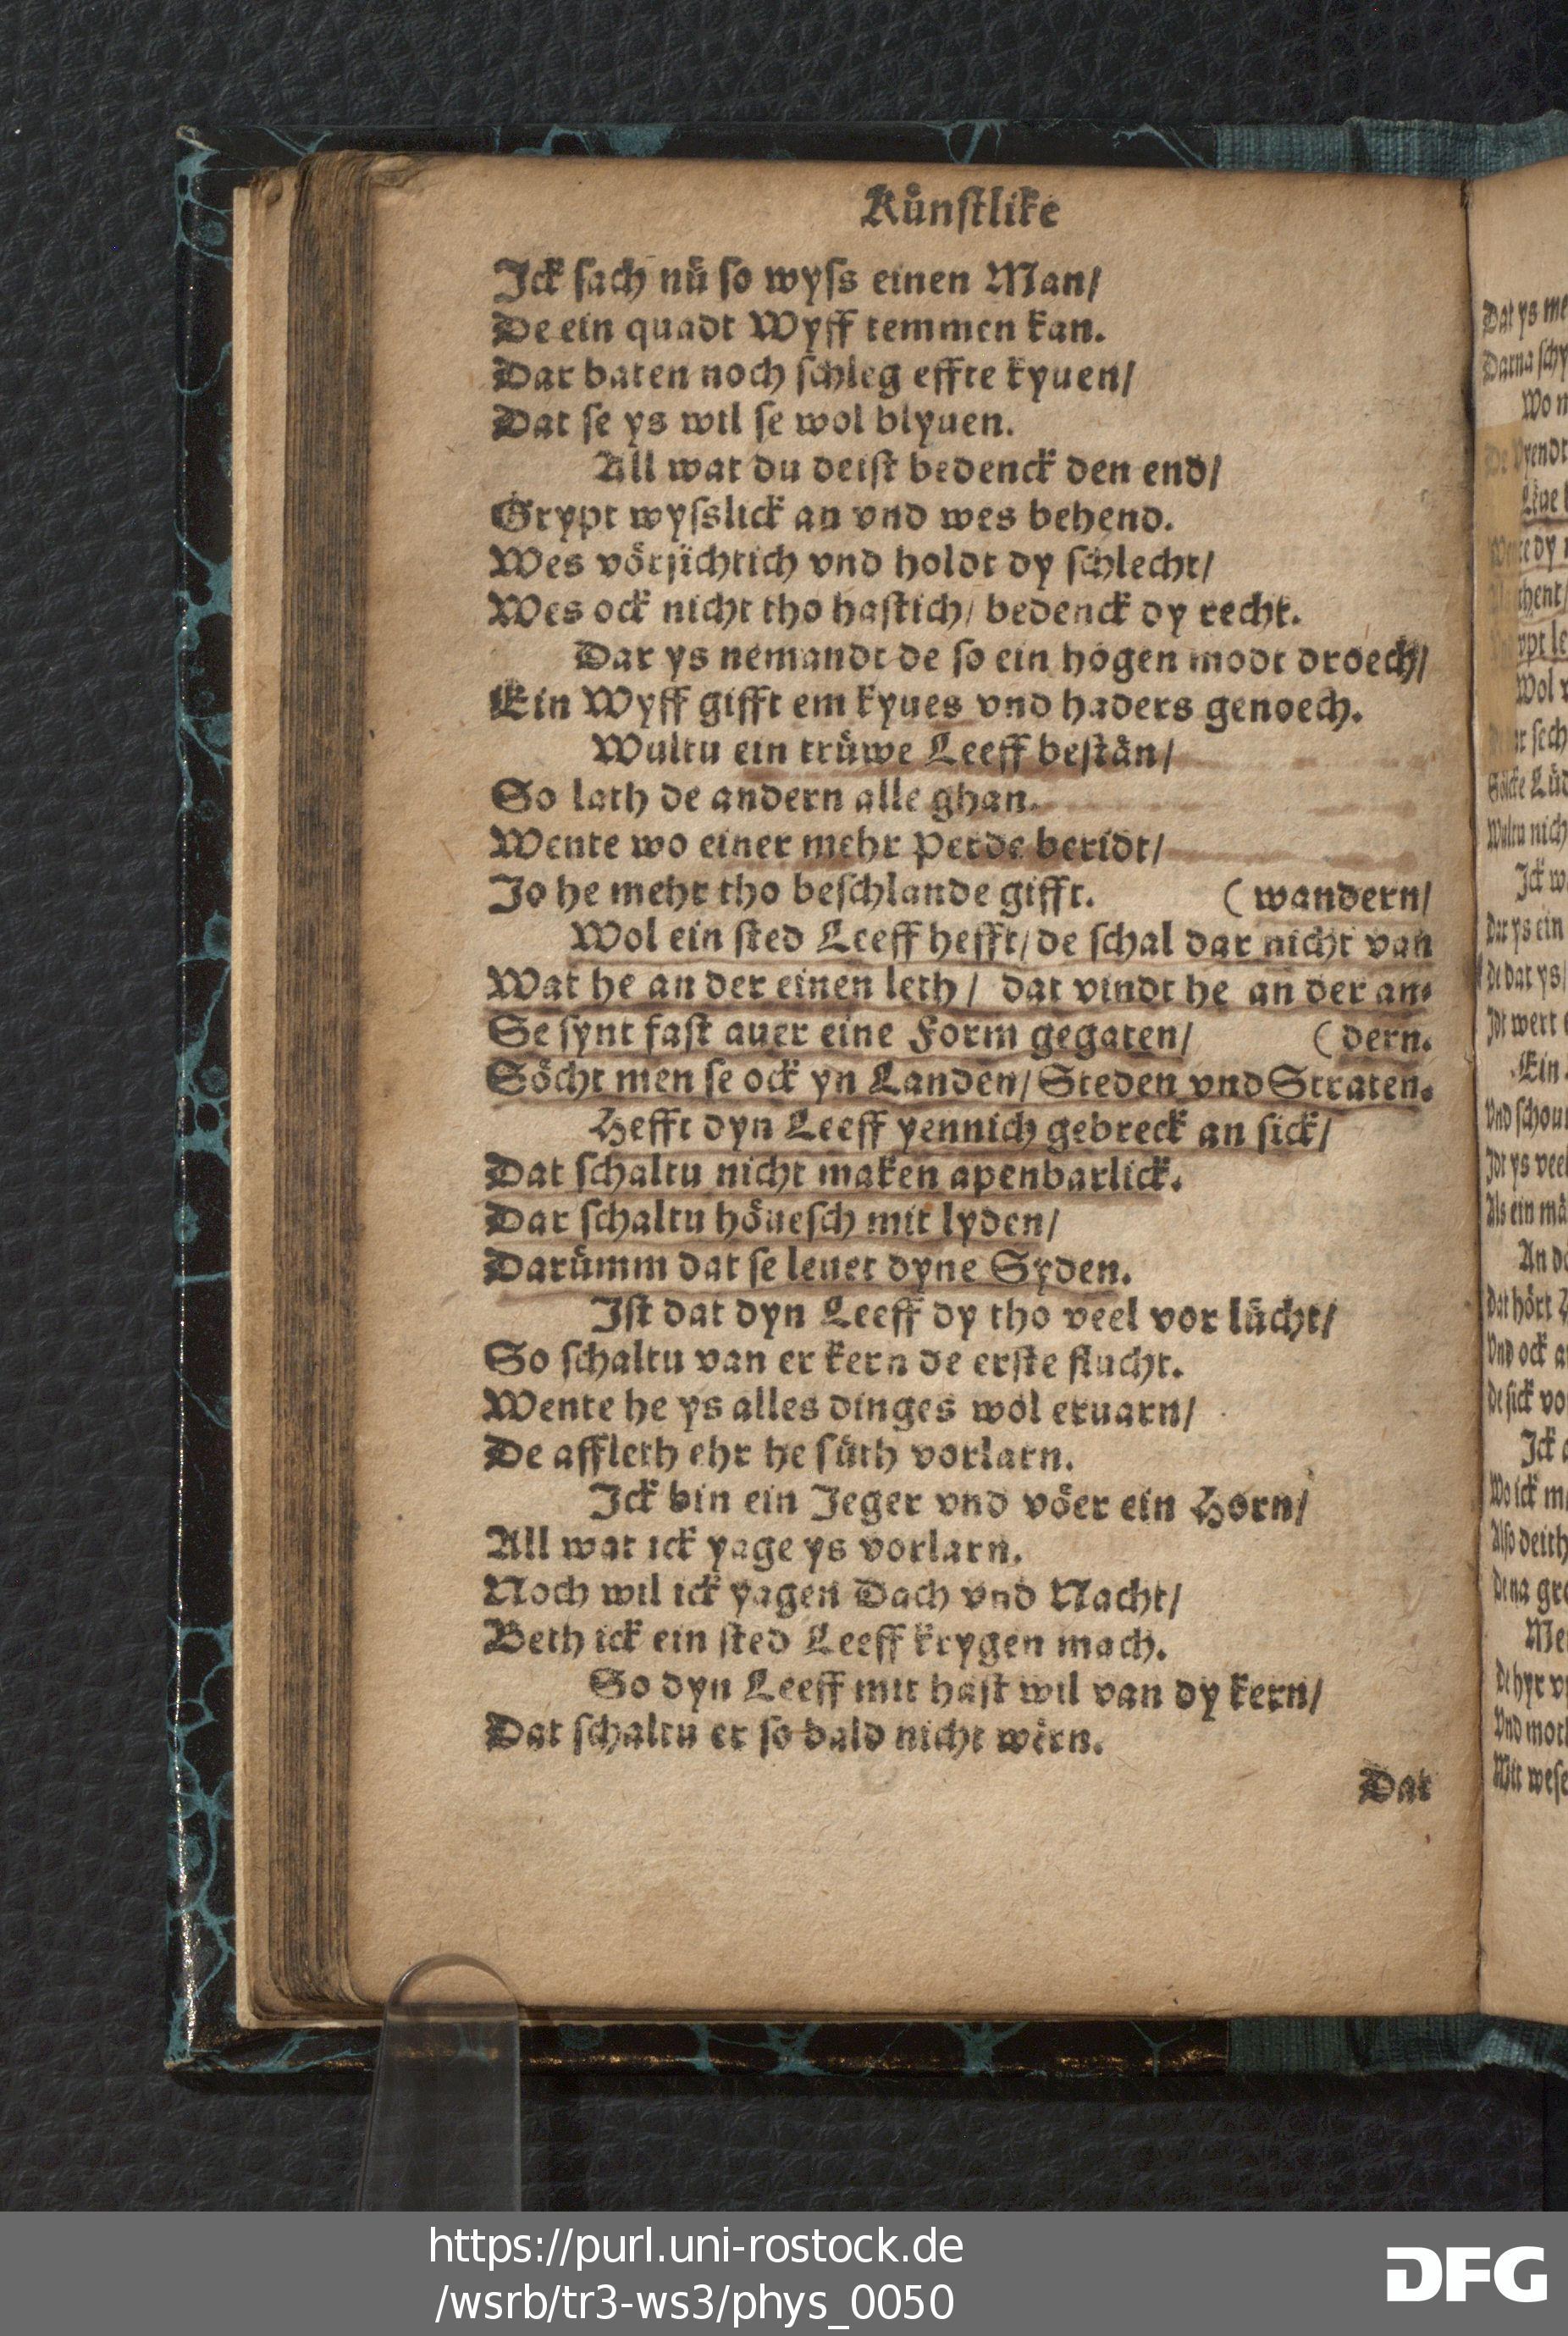 Kuͤnſtlike
Ick ſach nuͤ ſo wyſs einen Man/
De ein quadt Wyff temmen kan.
Dar baten noch ſchleg effte kyuen/
Dat ſe ys wil ſe wol blyuen.
All wat du deiſt bedenck den end/
Grypt wyſslick an vnd wes behend.
Wes voͤrſichtich vnd holdt dy ſchlecht/
Wes ock nicht tho haſtich/ bedenck dy recht.
Dar ys nemandt de ſo ein hogen modt droech/
Ein Wyff gifft em kyues vnd haders genoech.
Wultu ein truͤwe Leeff beſtaͤn/
So lath de andern alle ghan.
Wente wo einer mehr Perde beridt/
Jo he mehr tho beſchlande gifft. (wandern/
Wol ein ſted Leeff hefft/ de ſchal dar nicht van
Wat he an der einen leth/ dat vindt he an der an⸗
Se ſynt faſt auer eine Form gegaten/ (dern.
Soͤcht men ſe ock yn Landen/ Steden vnd Straten.
Hefft dyn Leeff yennich gebreck an ſick/
Dat ſchaltu nicht maken apenbarlick.
Dar ſchaltu hoͤueſch mit lyden/
Daruͤmm dat ſe leuet dyne Syden.
Iſt dat dyn Leeff dy tho veel vor luͤcht/
So ſchaltu van er kern de erſte flucht.
Wente he ys alles dinges wol eruarn/
De affleth ehr he ſuͤth vorlarn.
Ick bin ein Jeger vnd voͤer ein Horn/
All wat ick yage ys vorlarn.
Noch wil ick yagen Dach vnd Nacht/
Beth ick ein ſted Leeff krygen mach.
So dyn Leeff mit haſt wil van dy kern/
Dat ſchaltu er ſo bald nicht wern.
Dat
Dat ys
Darna
Wo
Ein
An
Ick
https://purl.uni-rostock.de
/wsrb/tr3-ws3/phys_0050
DFG